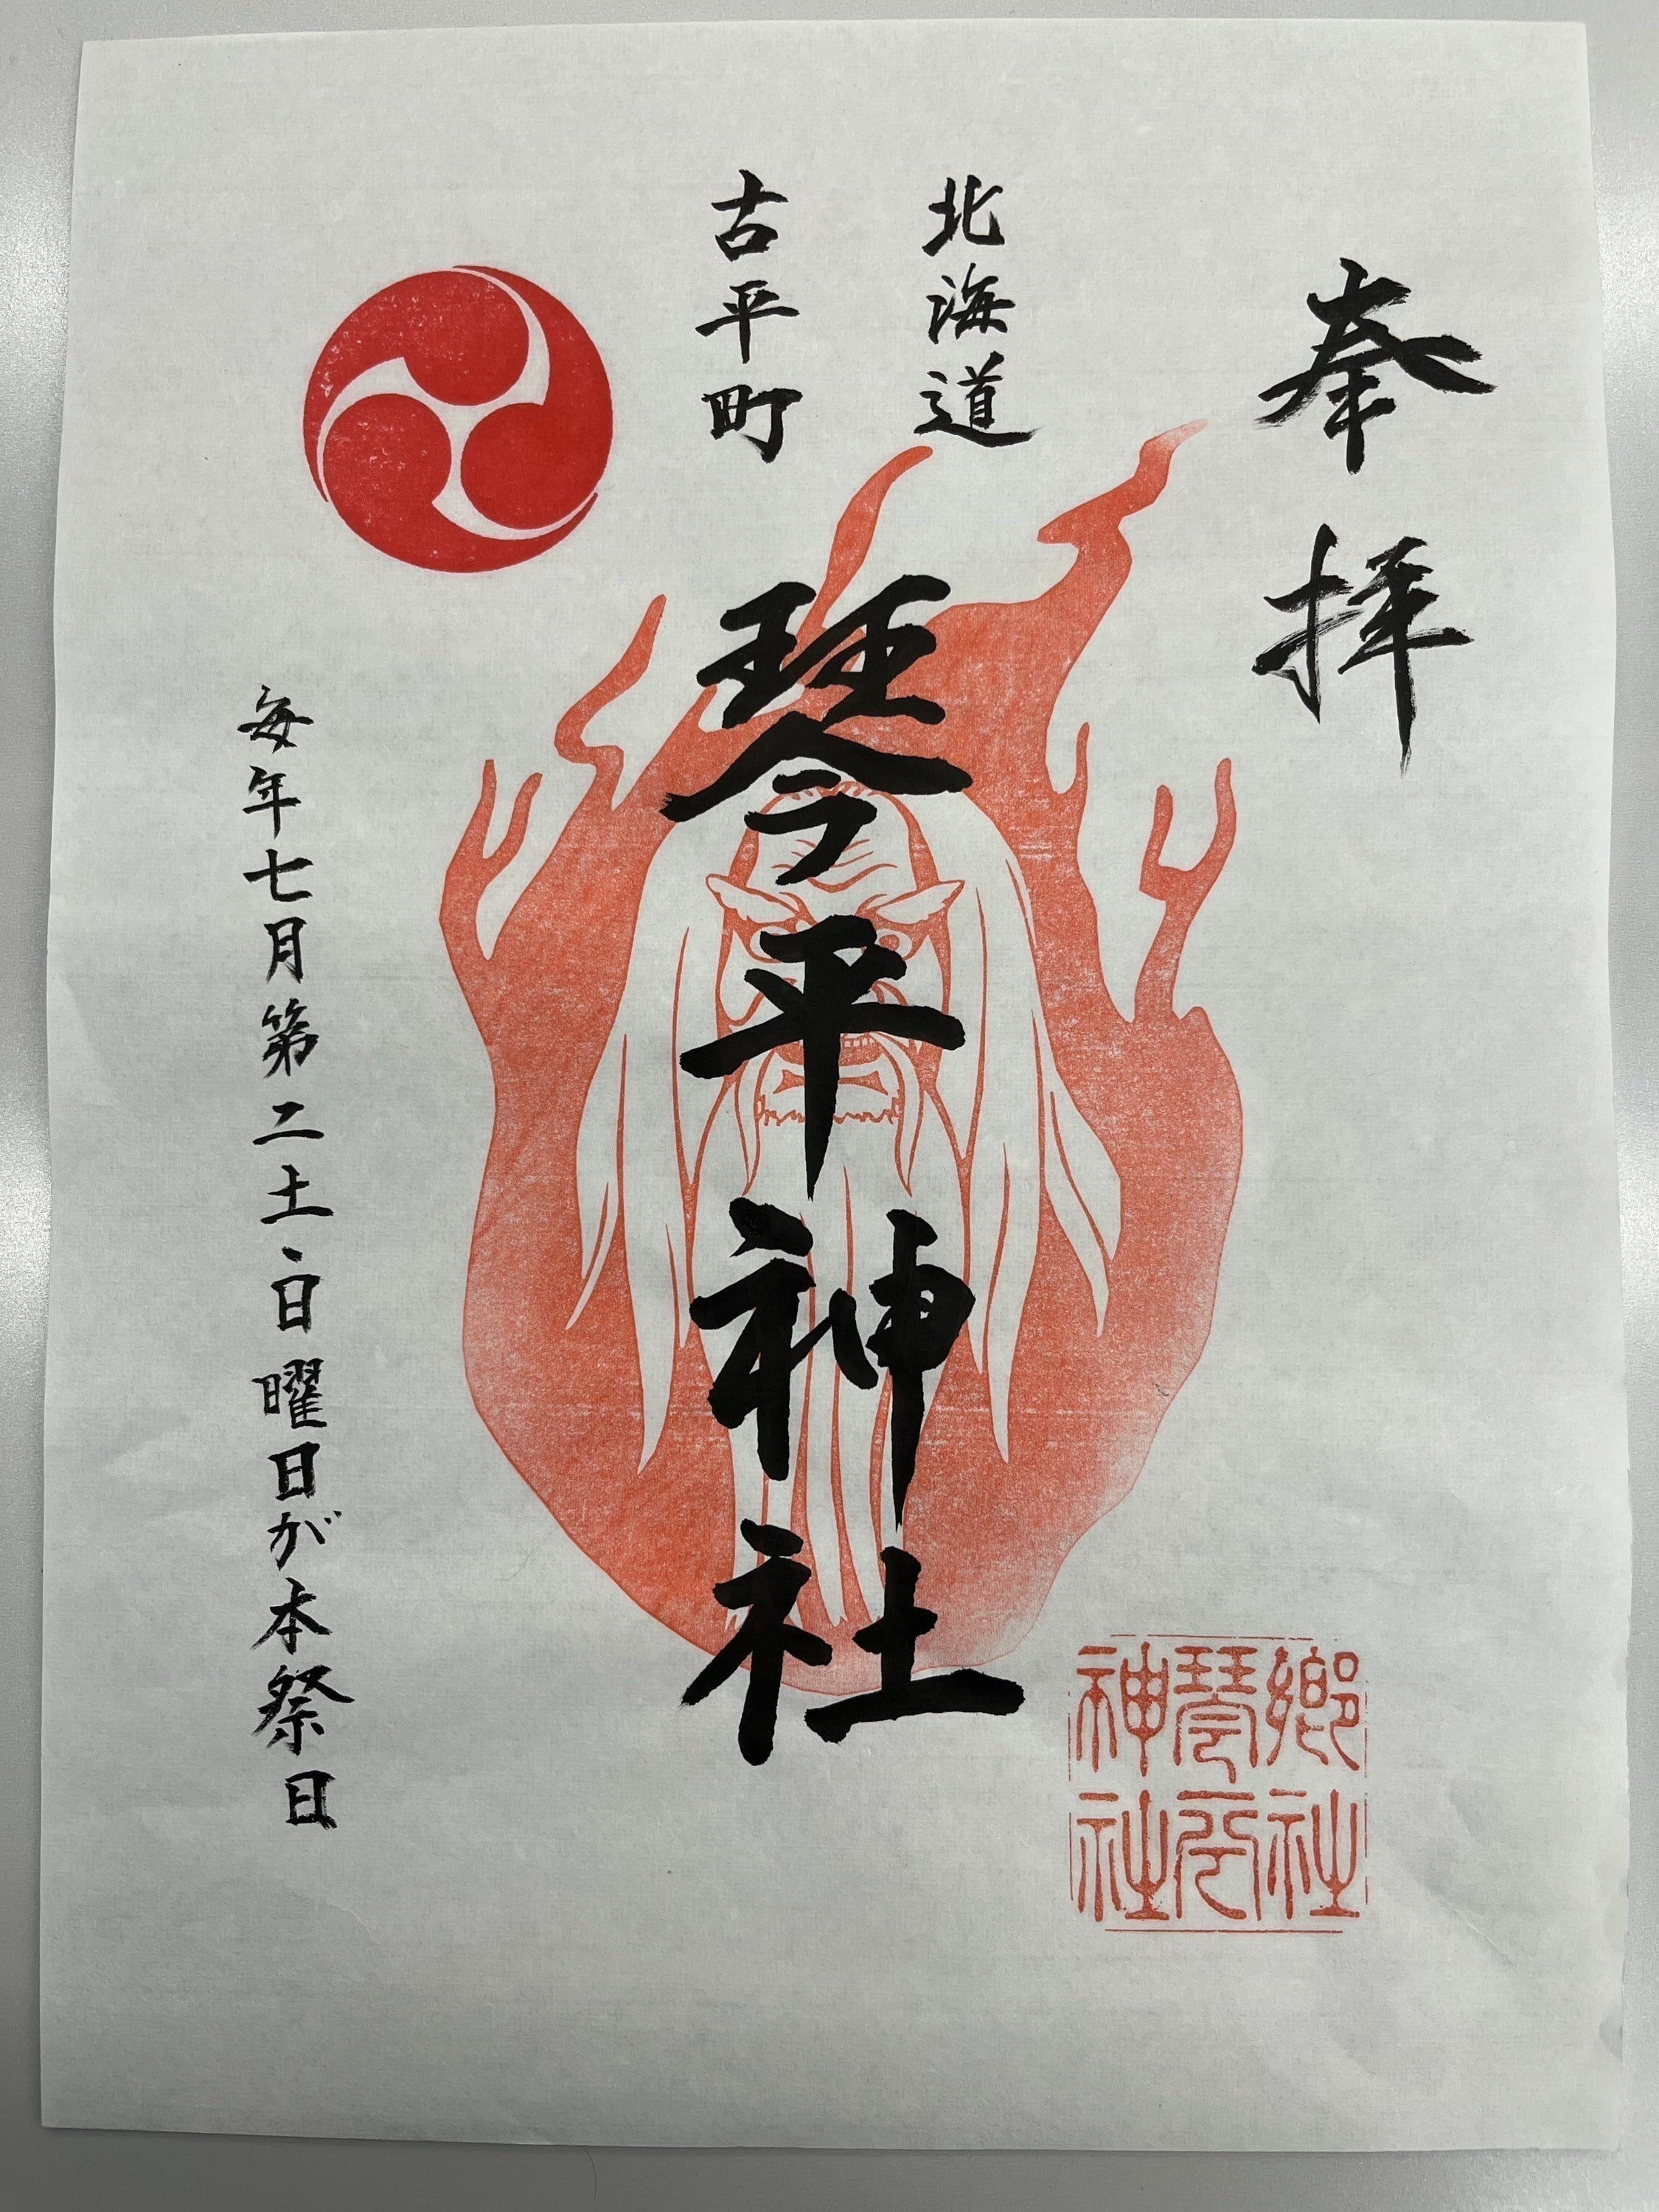 奉拝
北海道
古平町
琴平神社
毎年七月第二土、日曜日が本祭日
郷社
琴平
神社